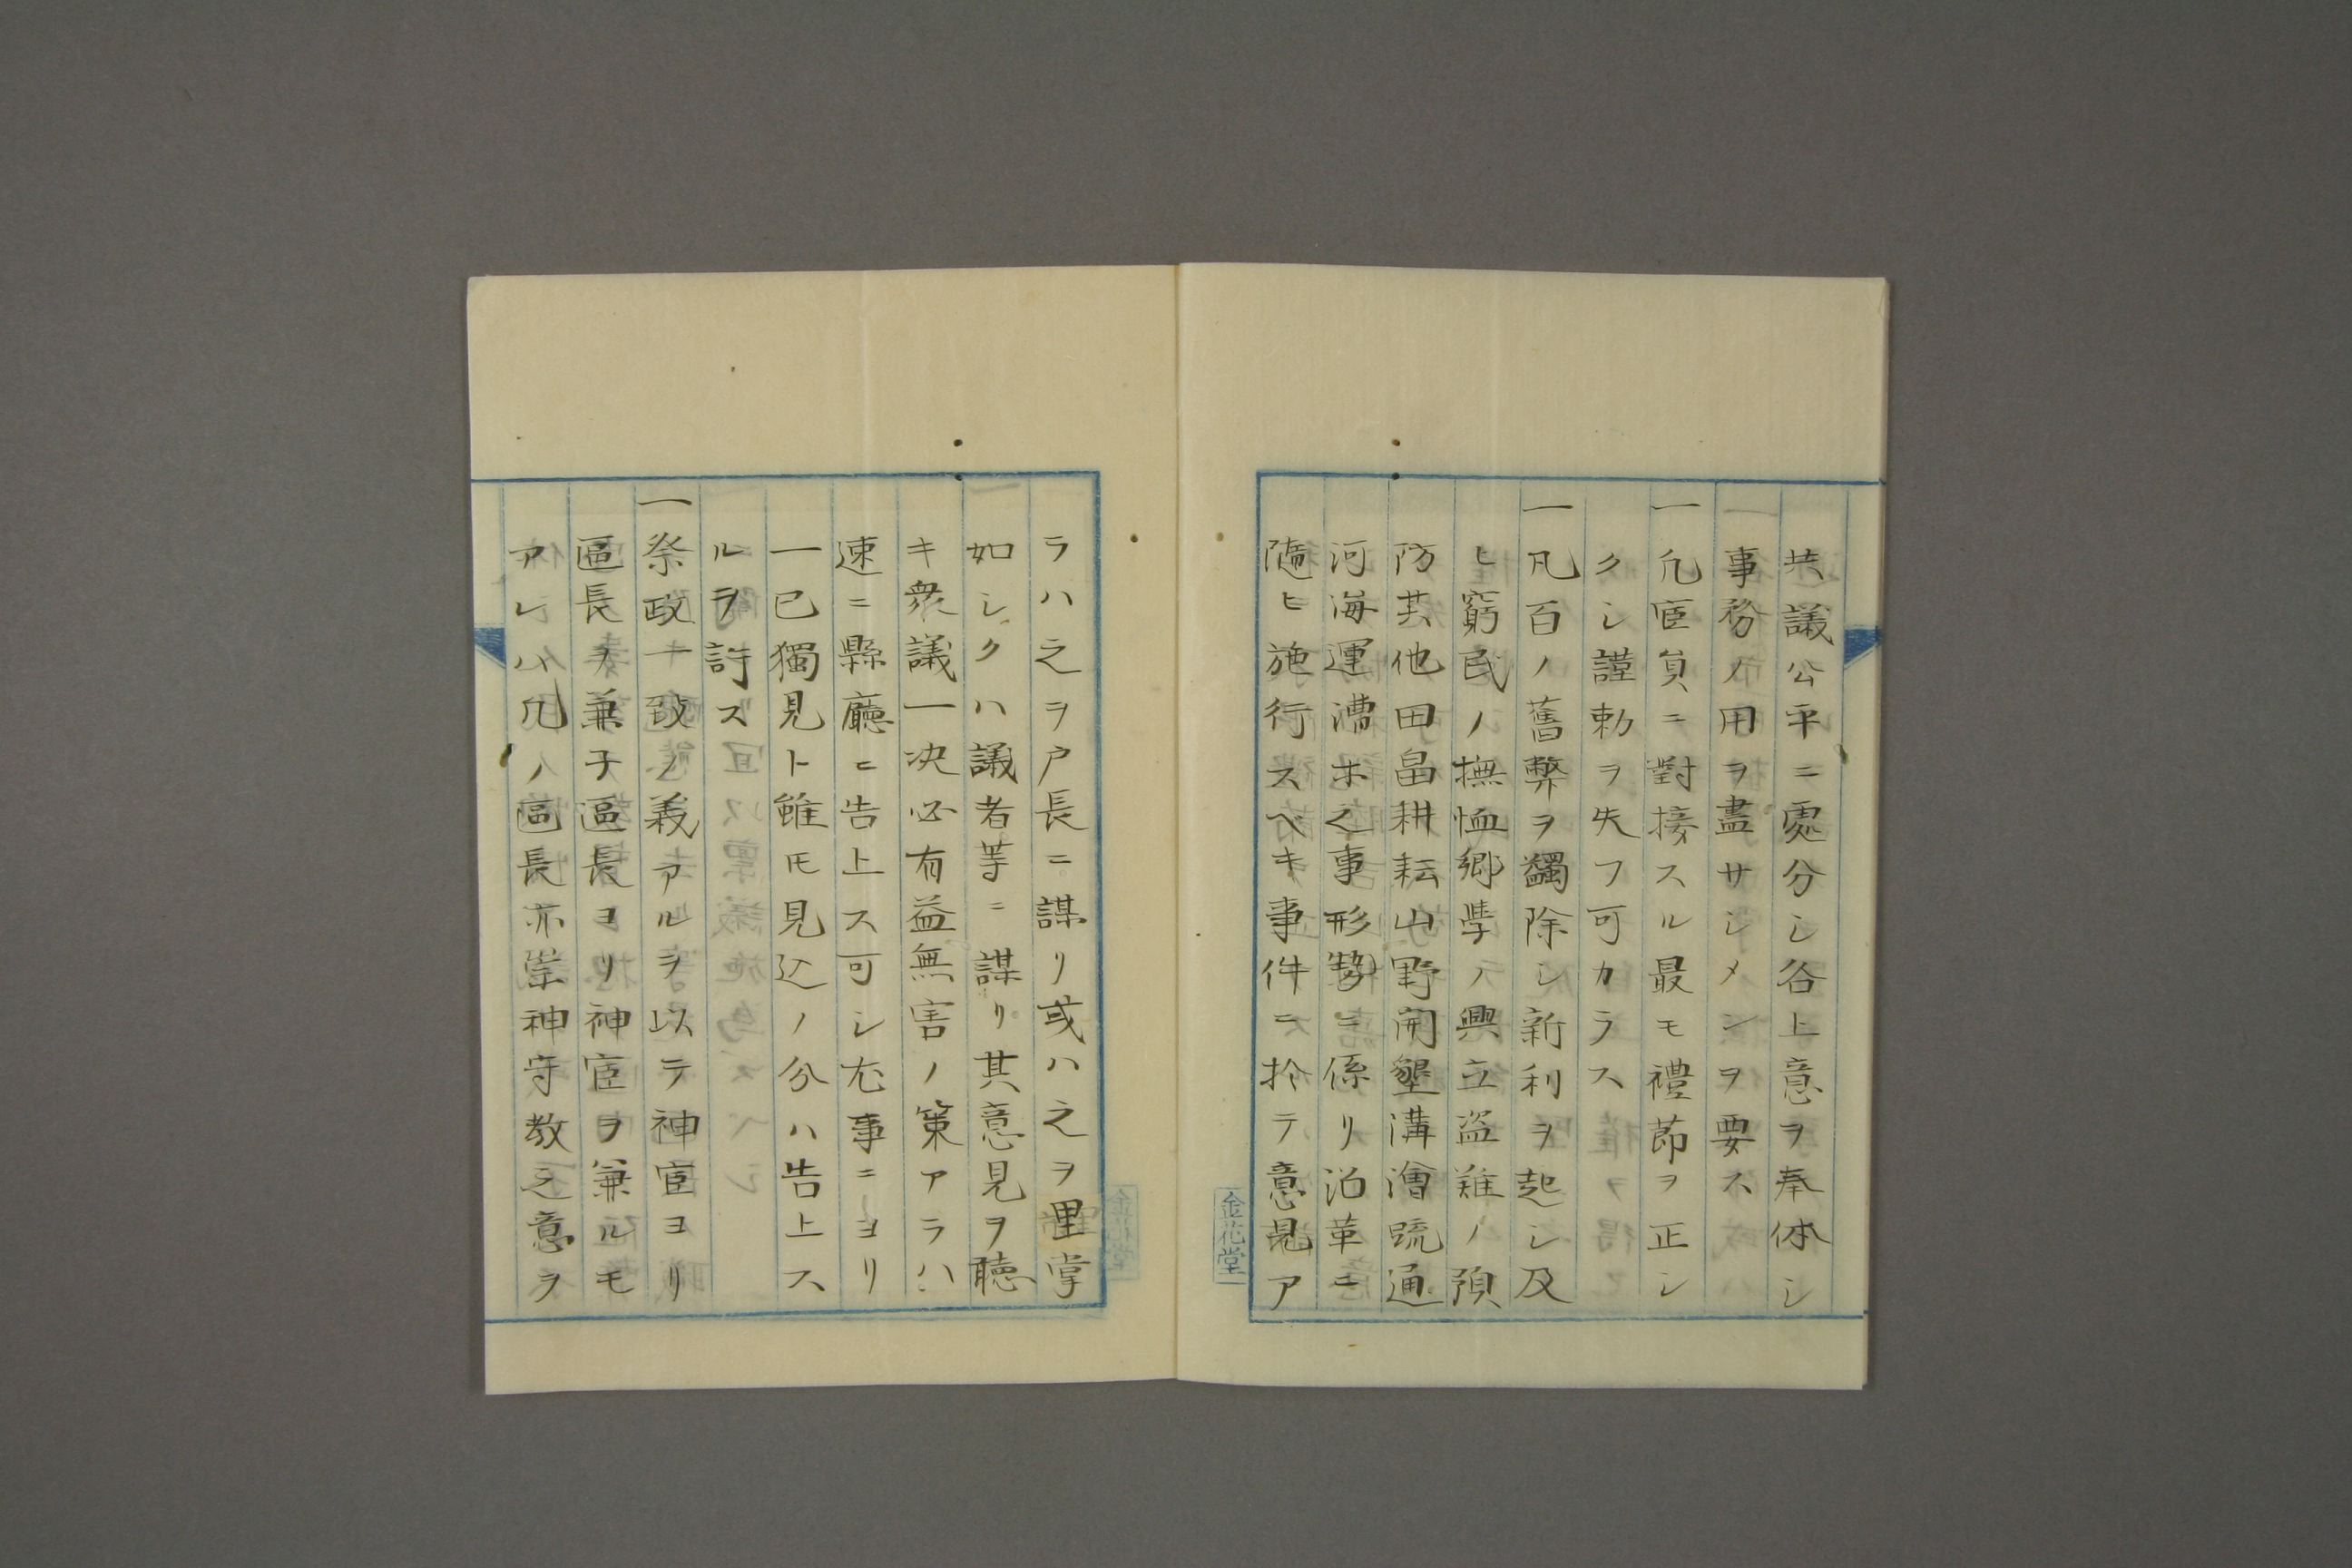 共議公平ニ處分シ各上意ヲ奉体シ
事務ノ用ヲ盡サシメンヲ要ス
一凡宦負ニ對接スル最モ禮節ヲ正シ
クシ謹勅ヲ失フ可カラス
一凡百ノ舊弊ヲ蠲除シ新利ヲ起シ及
ヒ窮民ノ撫恤郷學ノ興立盗難ノ預
防其他田畠耕耘山野開墾溝澮疏通
河海運漕ホ之事形勢ニ係リ沿革ニ
隨ヒ施行スベキ事件ニ於テ意見ア
金花堂
ラハ之ヲ戸長ニ謀リ或ハ之ヲ里掌
如シクハ議者等ニ謀リ其意見ヲ聽
キ衆議一决必有益無害ノ策アラハ
速ニ縣廳ニ告上ス可シ尤事ニヨリ
一已獨見ト雖モ見込ノ分ハ告上ス
ルヲ許ス
一祭政一致ノ義アルヲ以テ神宦ヨリ
區長ヲ兼子區長ヨリ神宦ヲ兼ルモ
アレハ凡ノ區長亦崇神守教之意ヲ